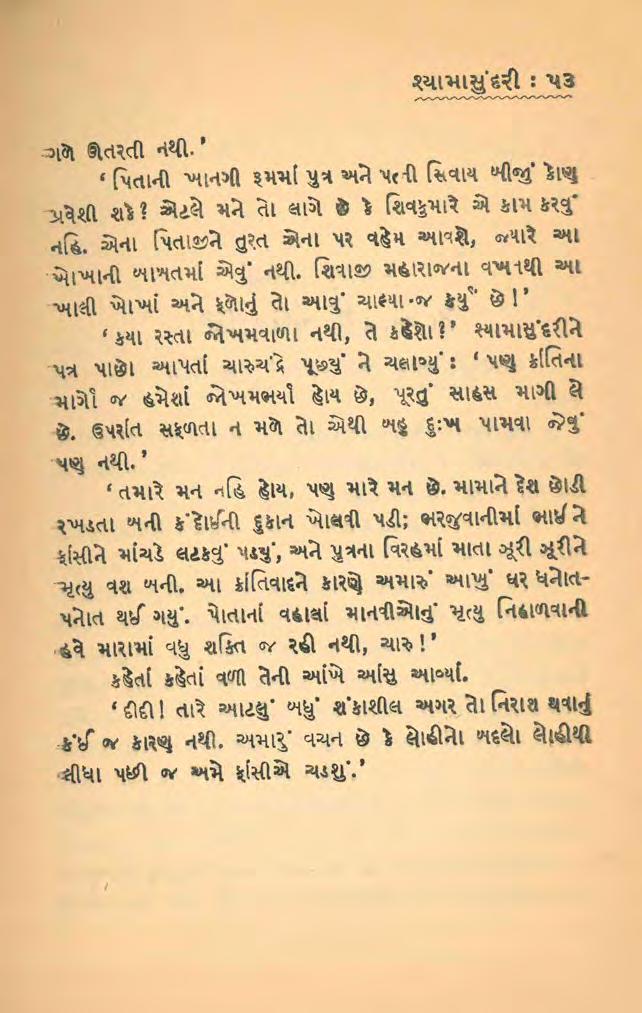 શ્યામાસુંદરી : ૫૩
ગળે ઊતરતી નથી.’
‘ પિતાની ખાનગી રૂમમાં પુત્ર અને પત્ની સિવાય બીજું કોણ
પ્રવેશી શકે? એટલે મને તો લાગે છે કે શિવકુમારે એ કામ કરવું
નહિ. એના પિતાજીને તુરત એના પર વહેમ આવશે, જ્યારે આ
ખોખાની બાબતમાં એવું નથી. શિવાજી મહારાજના વખતથી આ
ખાલી ખોખાં અને ફળોનું તો આવું ચાલ્યા-જ કર્યું છે !’
‘ કયા રસ્તા જોખમવાળા નથી, તે કહેશો ?’ શ્યામાસુંદરીને
પત્ર પાછો આપતાં ચારુચંદ્રે પૂછ્યું ને ચલાવ્યું : ‘ પણ ક્રાંતિના
માર્ગો જ હમેશાં જોખમભર્યા હોય છે, પૂરતું સાહસ માગી લે
છે. ઉપરાંત સફળતા ન મળે તો એથી બહુ દુઃખ પામવા જેવું
પણ નથી.’
‘ તમારે મન નહિ હોય, પણ મારે મન છે. મામાને દેશ છોડી
રખડતા બની કંદોઈની દુકાન ખોલવી પડી; ભરજુવાનીમાં ભાઈને
ફાંસીને માંચડે લટકવું પડયું, અને પુત્રના વિરહમાં માતા ઝૂરી ઝૂરીને
મૃત્યુ વશ બની. આ ક્રાંતિવાદને કારણે અમારું આખું ઘર ધનોત-
પનોત થઈ ગયું. પોતાનાં વહાલાં માનવીઓનું મૃત્યુ નિહાળવાની
હવે મારામાં વધુ શક્તિ જ રહી નથી, ચારુ !’
કહેતાં કહેતાં વળી તેની આંખે આંસુ આવ્યાં.
‘ દીદી ! તારે આટલું બધું શંકાશીલ અગર તો નિરાશ થવાનું
કંઈ જ કારણ નથી. અમારું વચન છે કે લોહીનો બદલો લોહીથી
લીધા પછી જ અમે ફાંસીએ ચડશું.’